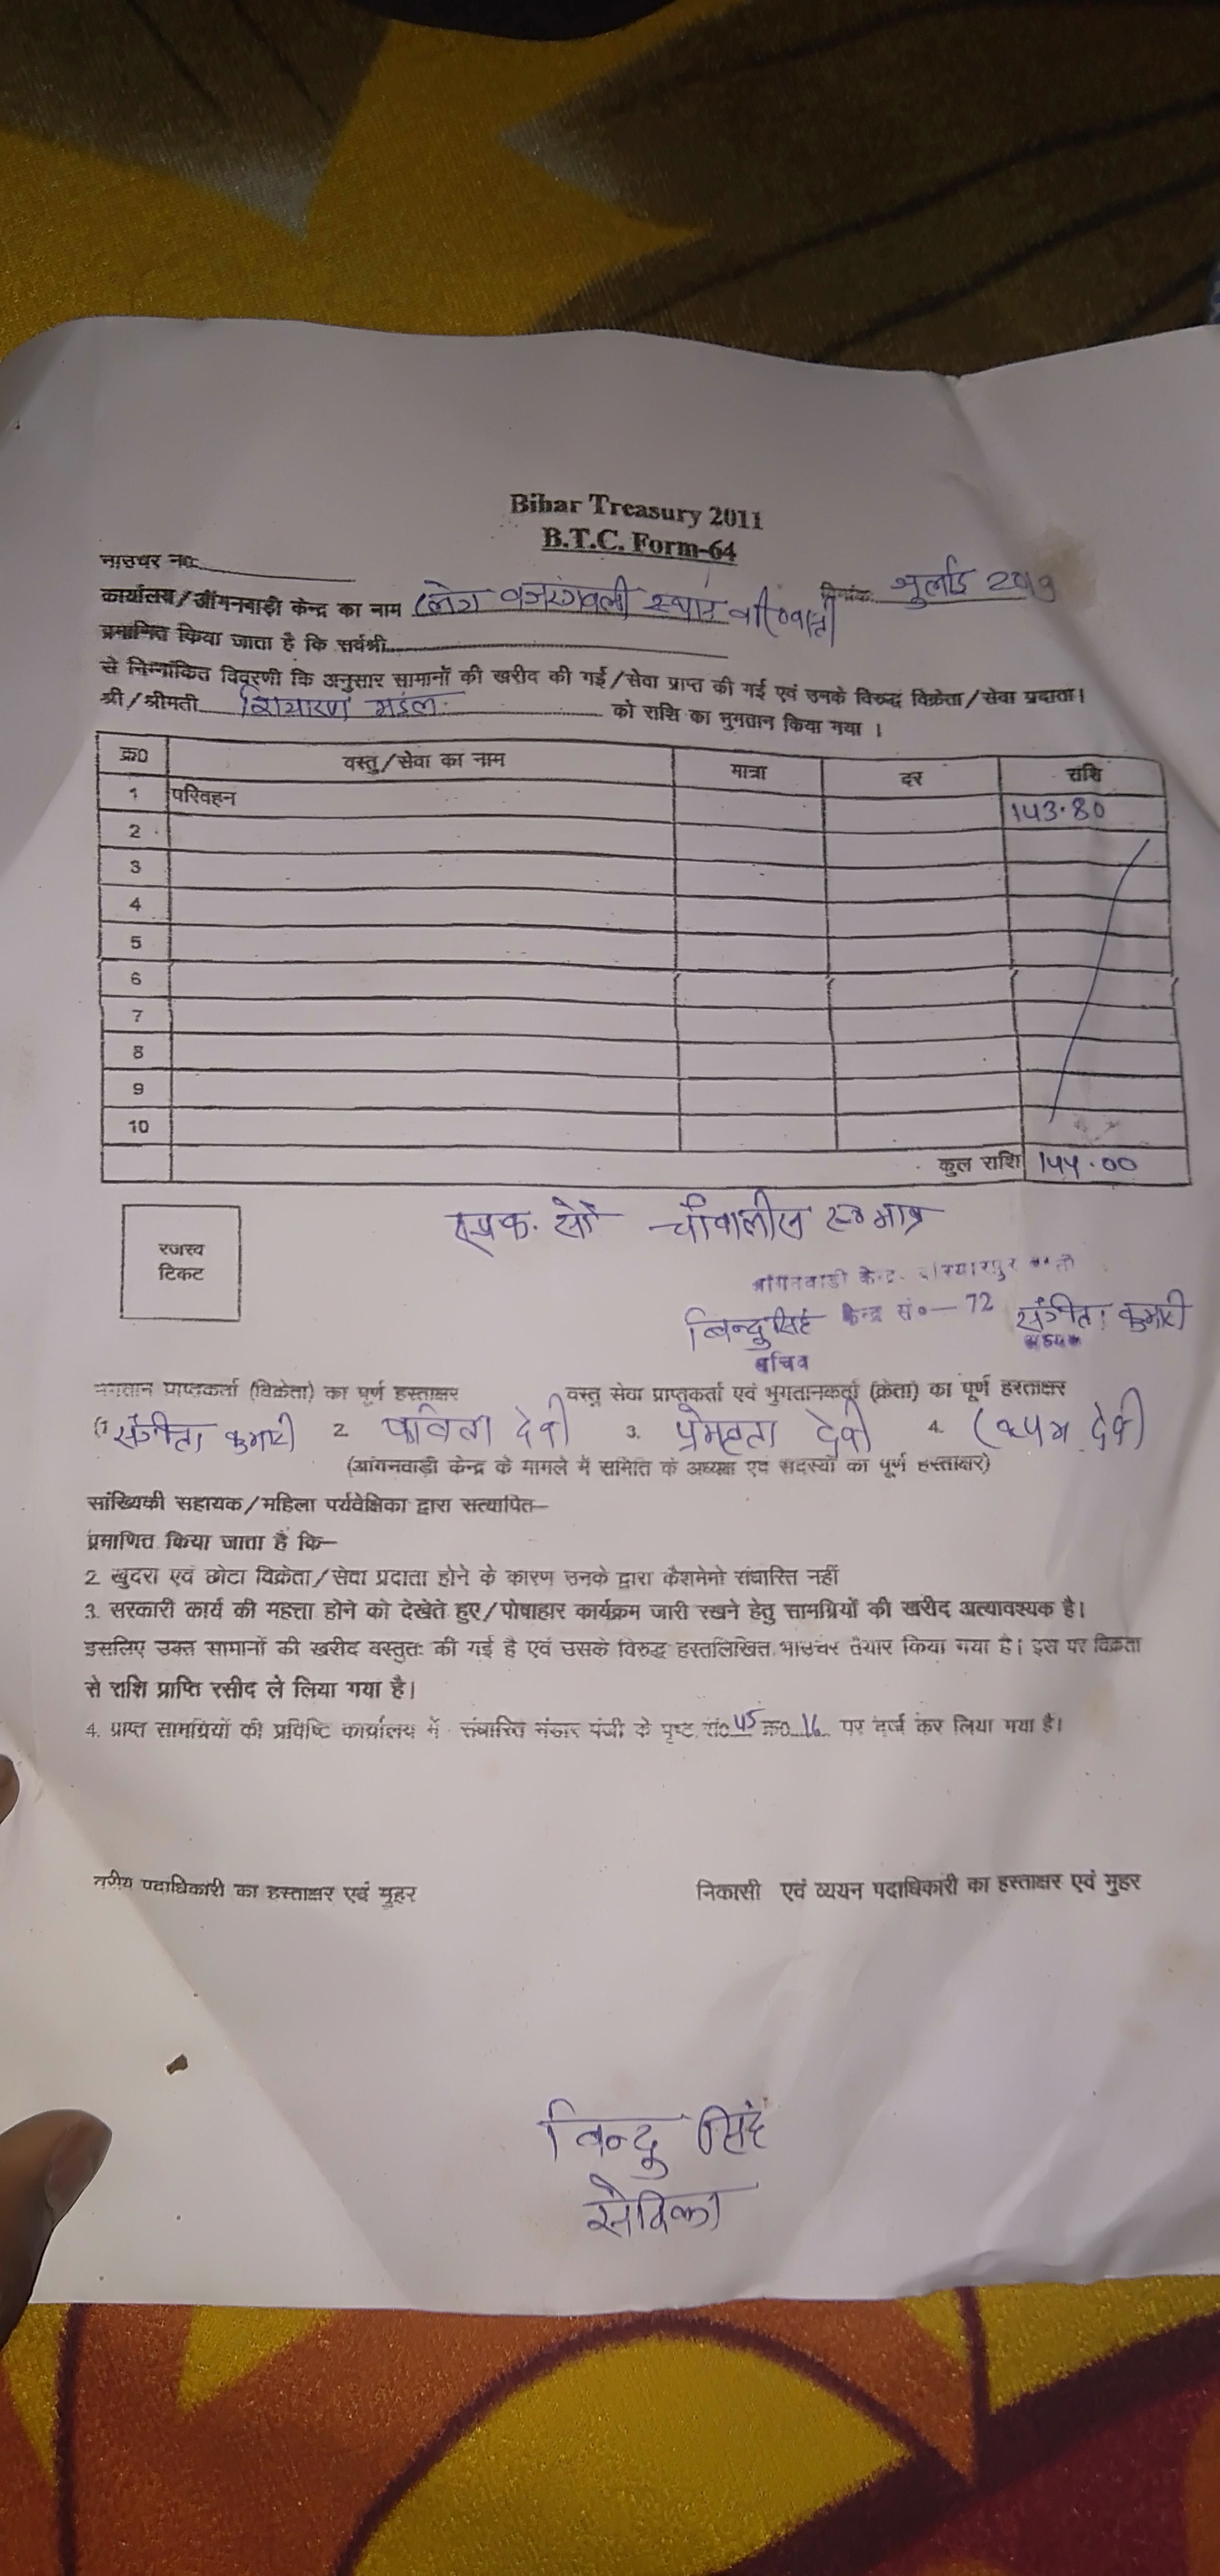 Bihar Treasury 2011
B.T.C. Form-64
भाउचर नं०
दिनांक जुलाई 2019
कार्यालय/आँगनबाड़ी केन्द्र का नाम वजरंगवली स्थान
प्रमाणित किया जाता है कि सर्वश्री
से निम्नांकित विवरणी कि अनुसार सामानों की खरीद की गई/सेवा प्राप्त की गई एवं उनके विरुद्ध विक्रेता/सेवा प्रदाता।
श्री/श्रीमती मंडल को राशि का भुगतान किया गया ।
क्र0 वस्तु/सेवा का नाम मात्रा दर राशि
1 परिवहन 143.80
2
3
4
5
6
7
8
9
10
कुल राशि 144.00
रजस्व
टिकट
एक सौ चौवालीस रू० मात्र
आंगनवाडी केन्द्र
केन्द्र सं०— 72
विन्दु सिंह संगीता कुमारी
सचिव
भुगतान प्राप्तकर्ता (विक्रेता) का पूर्ण हस्ताक्षर वस्तु सेवा प्राप्तकर्ता एवं भुगतानकर्ता (क्रेता) का पूर्ण हस्ताक्षर
(1 संगीता कुमारी 2. कविता देवी 3. प्रेमलता देवी 4. देवी
(आंगनवाड़ी केन्द्र के मामले में समिति के अध्यक्ष एवं सदस्यों का पूर्ण हस्ताक्षर)
सांख्यिकी सहायक/महिला पर्यवेक्षिका द्वारा सत्यापित—
प्रमाणित किया जाता है कि—
2. खुदरा एवं छोटा विक्रेता/सेवा प्रदाता होने के कारण उनके द्वारा कैशमेमो संधारित नहीं
3. सरकारी कार्य की महत्ता होने को देखेते हुए/पोषाहार कार्यक्रम जारी रखने हेतु सामग्रियों की खरीद अत्यावश्यक है।
इसलिए उक्त सामानों की खरीद वस्तुतः की गई है एवं उसके विरुद्ध हस्तलिखित भाउचर तैयार किया गया है। इस पर विक्रेता
से राशि प्राप्ति रसीद ले लिया गया है।
4. प्राप्त सामग्रियों की प्रविष्टि कार्यालय में संधारित भंडार पंजी के पृष्ट सं० 45 क्र0 16 पर दर्ज कर लिया गया है।
पदाधिकारी का हस्ताक्षर एवं मुहर निकासी एवं व्ययन पदाधिकारी का हस्ताक्षर एवं मुहर
विन्दु सिंह
सेविका